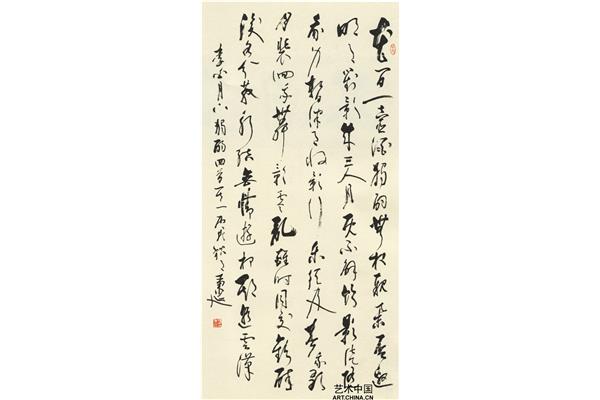 花間一壺酒獨酌無相親舉杯邀
明月對影成三人月既不解飲影徒隨
我身暫伴月將影行樂須及春我歌
月裴回我舞影零亂醒時同交歡醉
後各分散永結無情遊相期邈雲漢
李白月下獨酌四首其一
艺术中国
ART.CHINA.CN